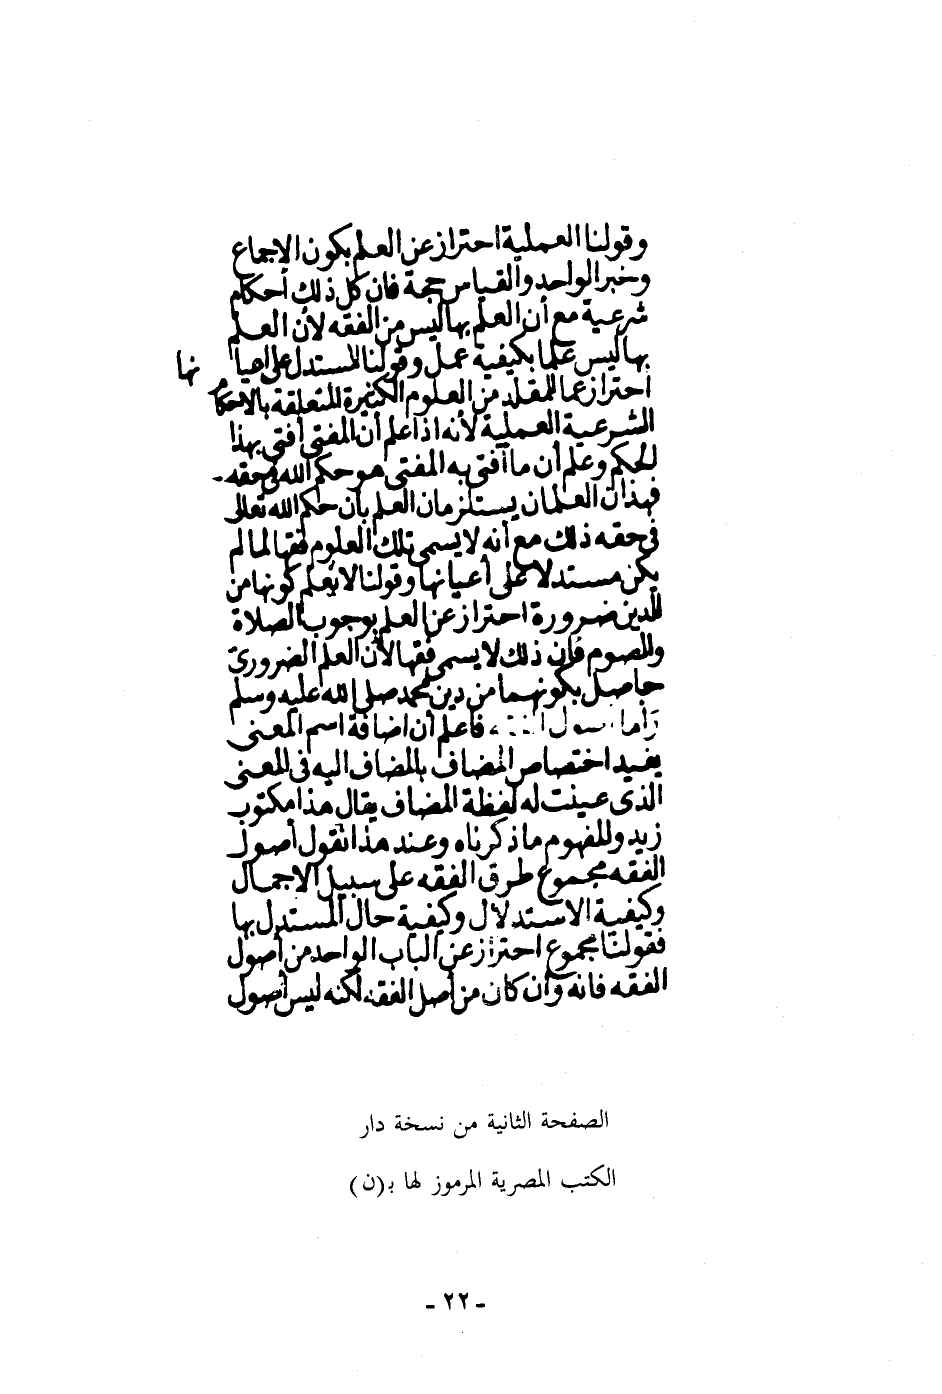 وقولنا العملية احتراز عن العلم بكون الاجماع
وخبر الواحد والقياس حجة فان كل ذلك أحكام
شرعية مع أن العلم بها ليس من الفقه لأن العلم
بها ليس علما بكيفية عمل وقولنا المستدل على اعيا نها
احتراز عما للمقلد من العلوم الكثيرة المتعلقة بالاحكام
الشرعية العملية لأنه اذا علم أن المفتى أفتى بهذا
الحكم وعلم أن ما أفتى به المفتى هو حكم الله فى حقه
فهذان العلمان يستلزمان العلم بأن حكم الله تعالى
فى حقه ذلك مع أنه لا يسمى تلك العلوم فقها لما لم
يكن مستدلا على أعيانها وقولنا لا يعلم كونها من
الدين ضرورة احتراز عن العلم بوجوب الصلاة
والصوم فان ذلك لا يسمى فقها لأن العلم الضرورىّ
حاصل بكونهما من دين محمد صلى الله عليه وسلم
فاعلم أن اضافة اسم المعنى
يفيد اختصاص المضاف بالمضاف اليه فى المعنى
الذى عينت له لفظة المضاف يقال هذا مكتوب
زيد والمفهوم ما ذكرناه وعند هذا نقول أصول
الفقه مجموع طرق الفقه على سبيل الاجمال
وكيفية الاستدلال وكيفية حال المستدل بها
فقولنا مجموع احتراز عن الباب الواحد من أصول
الفقه فانه وان كان من أصل الفقه لكنه ليس أصول
الصفحة الثانية من نسخة دار
الكتب المصرية المرموز لها بـ(ن)
- ٢٢ -